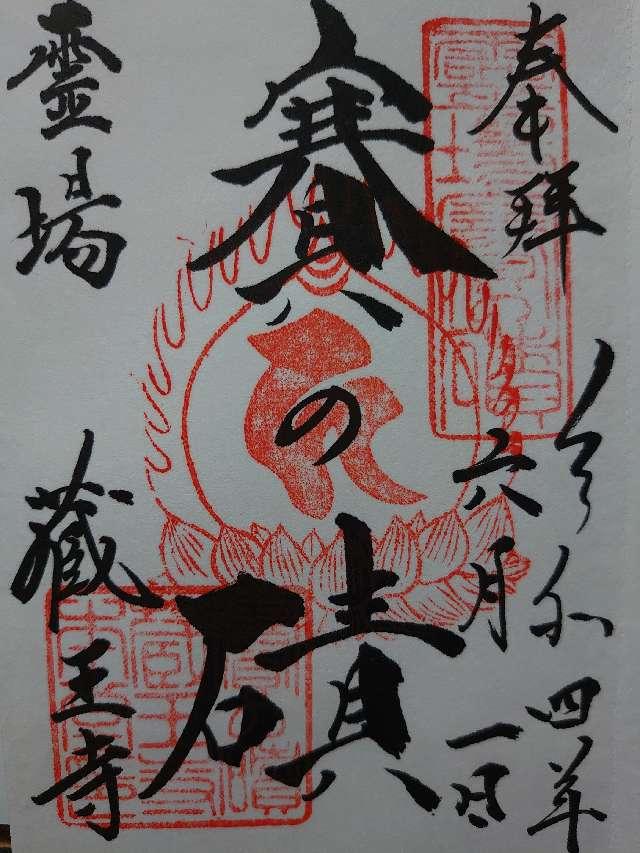 奉拝
令和四年
六月一日
賽の磧
霊場
蔵王寺